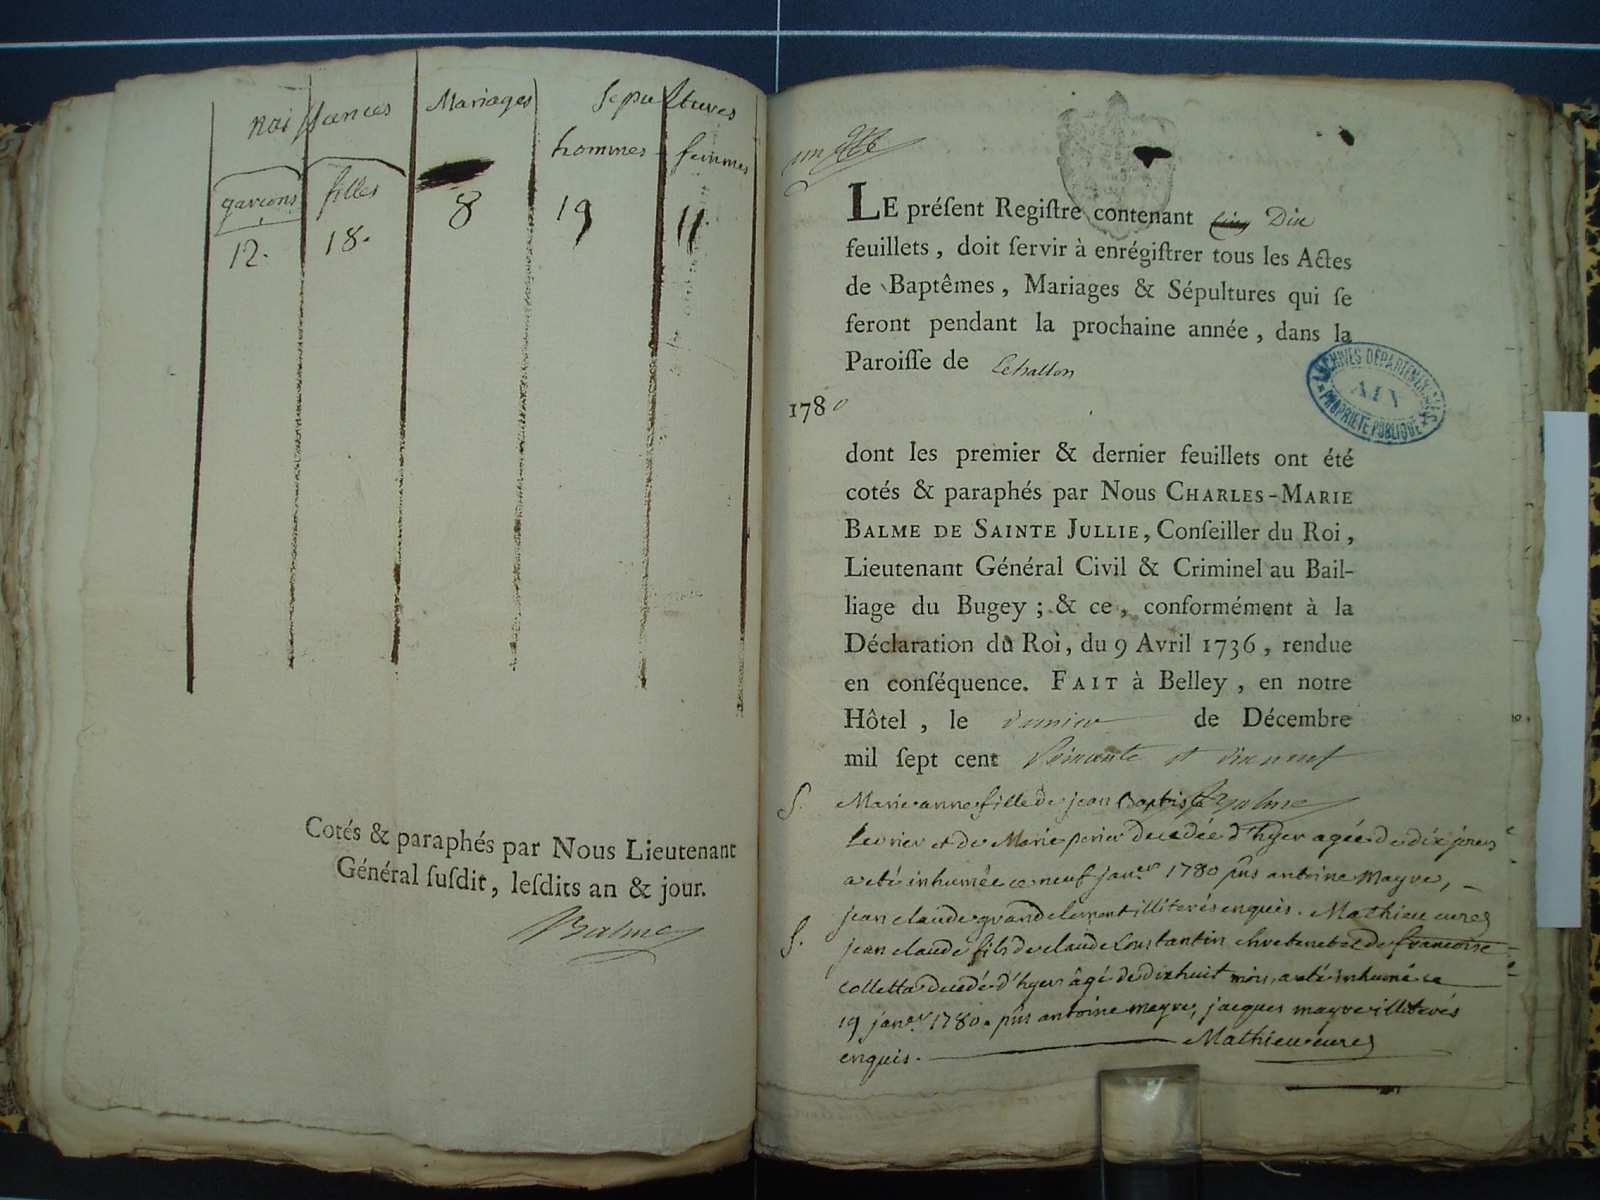 naissances Mariages Sepultures
hommes femmes
garçons filles
12. 18. 8 19 11
Cotés & paraphés par Nous Lieutenant
Général ſuſdit, leſdits an & jour.
Balme
un
LE préſent Regiſtre contenant Dix
feuillets, doit ſervir à enrégiſtrer tous les Actes
de Baptêmes, Mariages & Sépultures qui ſe
feront pendant la prochaine année, dans la
Paroiſſe de Echallon
1780
ARCHIVES DÉPARTEMENTALES
AIN
PROPRIÉTÉ PUBLIQUE
dont les premier & dernier feuillets ont été
cotés & paraphés par Nous CHARLES-MARIE
BALME DE SAINTE JULLIE, Conſeiller du Roi,
Lieutenant Général Civil & Criminel au Bail-
liage du Bugey ; & ce, conformément à la
Déclaration du Roi, du 9 Avril 1736, rendue
en conſéquence. FAIT à Belley, en notre
Hôtel, le dernier de Décembre
mil ſept cent soixante et dix neuf
Balme
S. Marie anne fille de jean Baptiste
levrier et de Marie perier decedée d'hyer agée de dix jours
a eté inhumée ce neuf janer 1780 pñs antoine Mayre,
jean claude grandclement illiterés enquis. Mathieu curé
S. jean claude fils de claude Constantin et de francoise
colletta decedé d'hyer âgé de dixhuit mois, a eté inhumé ce
19 janer 1780. pñs antoine mayre, jacques mayre illiterés
enquis. Mathieu curé